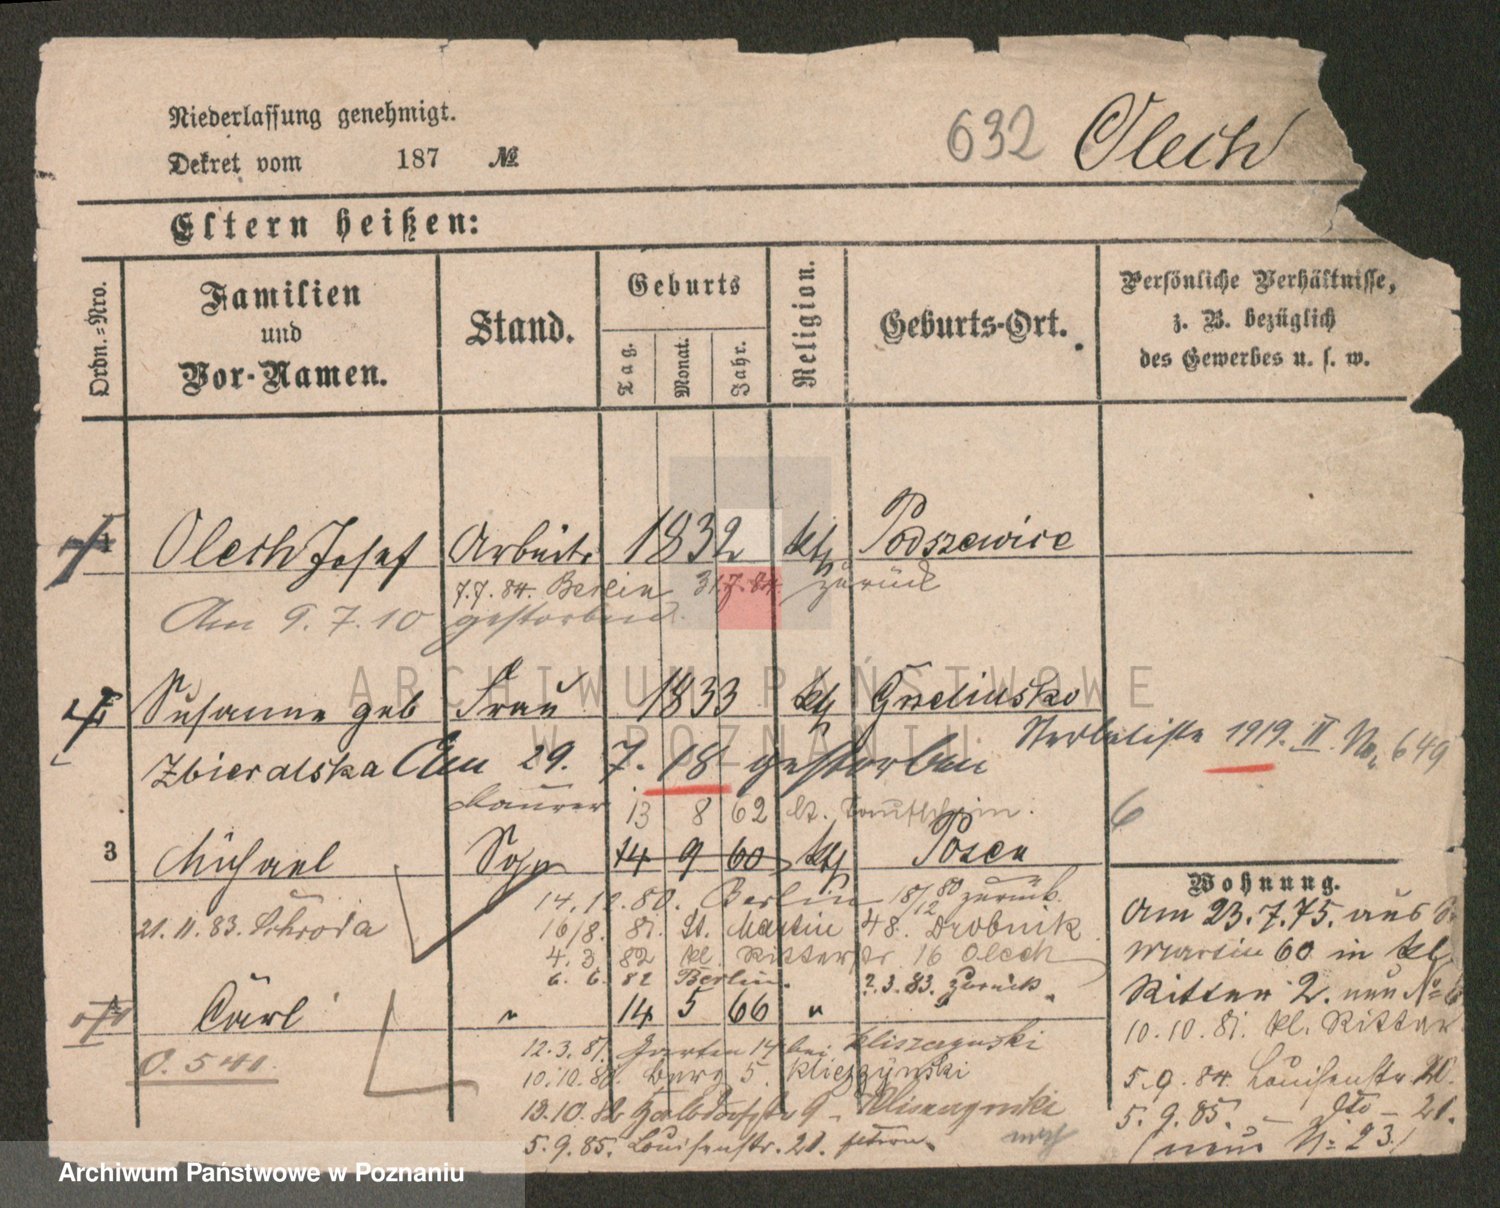 Niederlassung genehmigt.
632 Olech
Dekret vom 187 №
Eltern heißen:
Ordn.=Nro.
Familien
und
Vor-Namen.
Stand.
Geburts
Tag.
Monat.
Jahr.
Religion.
Geburts-Ort.
Persönliche Verhältnisse,
z. B. bezüglich
des Gewerbes u. s. w.
1 Olech Josef Arbeiter 1832 kth Podszewice
7.7.84. Berlin 31.7.84. zurück
Am 9.7.10 gestorben.
2 Susanne geb Frau 1833 kth
Zbieralska Am 29. 7. 18 gestorben
Sterbeliste 1919. II. No. 649
13 8 62 lt. Taufschein.
6
3 Michael Sohn 14 9 60 kth Posen
14.12.80. Berlin 18/12 80 zurück.
21.11.83. Schroda
16/8. 81. St. Martin 48. Drobnik
4.3.82 kl. Ritterstr 16 Olech
6.6.82 Berlin. 2.3.83. zurück.
4 Carl " 14 5 66 "
O. 541.
12.3.81. Garten 14 bei
10.10.80. Berg 5.
13.10.82
5.9.85. Louisenstr. 21.
Wohnung.
Am 23.7.75. aus St.
Martin 60 in kl.
Ritter 2. neu No
10.10.81. kl. Ritter
5.9.84. Louisenstr 20.
5.9.85. – dto – 21.
(neue N: 23.)
ARCHIWUM PAŃSTWOWE
W POZNANIU
Archiwum Państwowe w Poznaniu